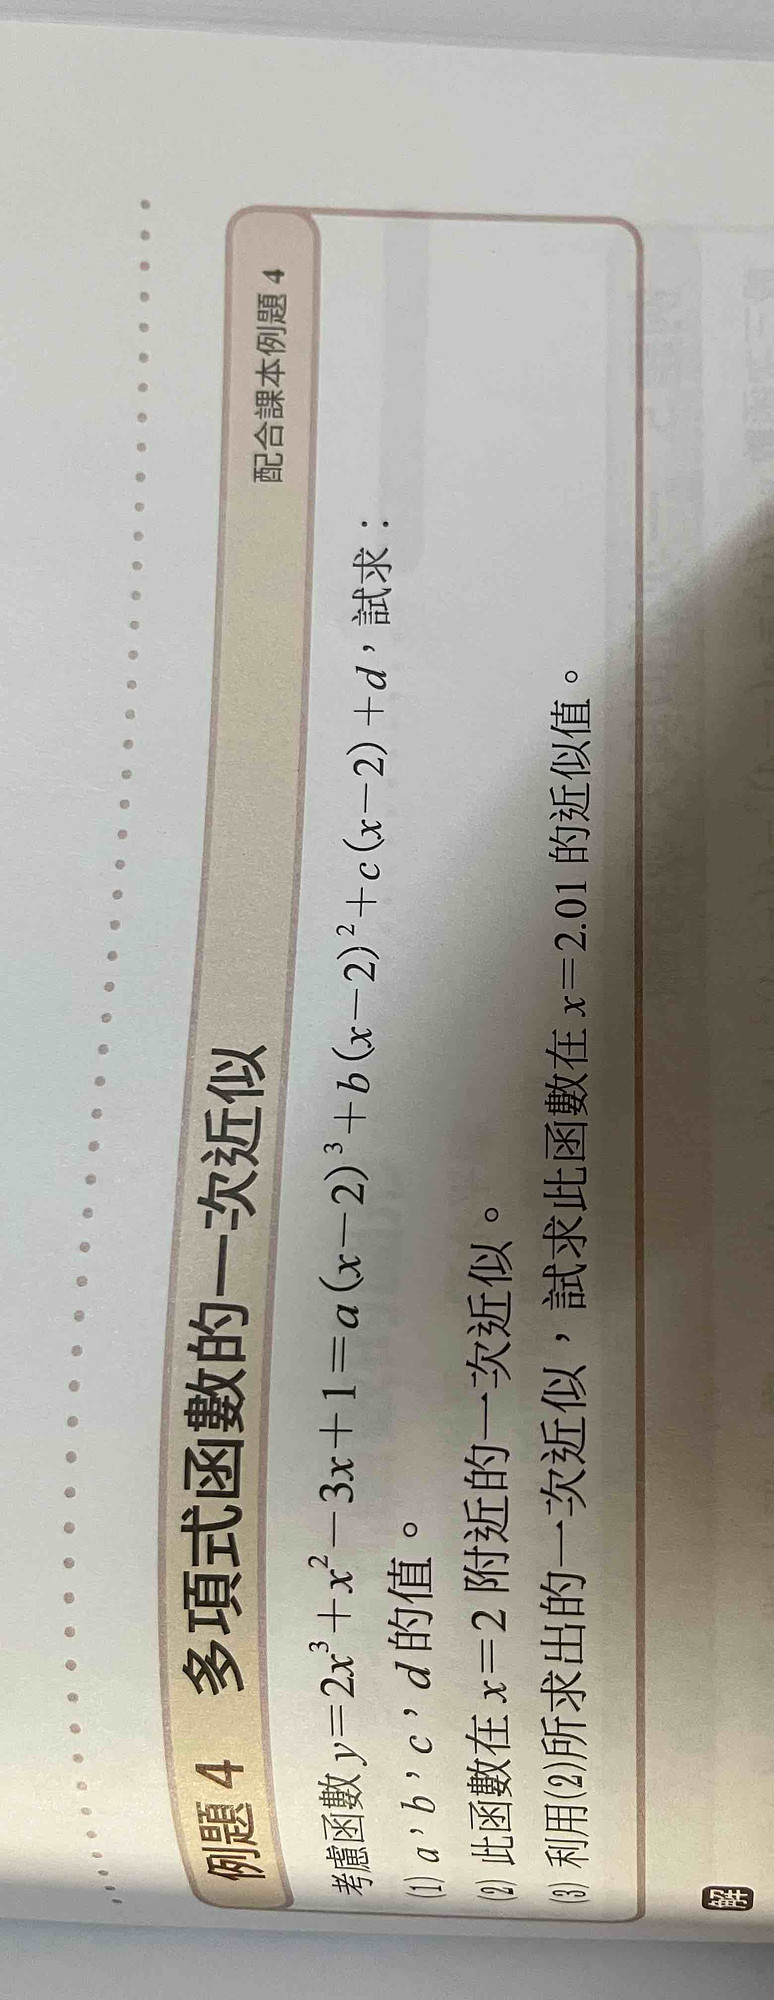 例題 4 多項式函數的一次近似 配合課本例題 4
考慮函數 y=2x³+x²-3x+1=a(x-2)³+b(x-2)²+c(x-2)+d，試求：
(1) a，b，c，d 的值。
(2) 此函數在 x=2 附近的一次近似。
(3) 利用(2)所求出的一次近似，試求此函數在 x=2.01 的近似值。
解